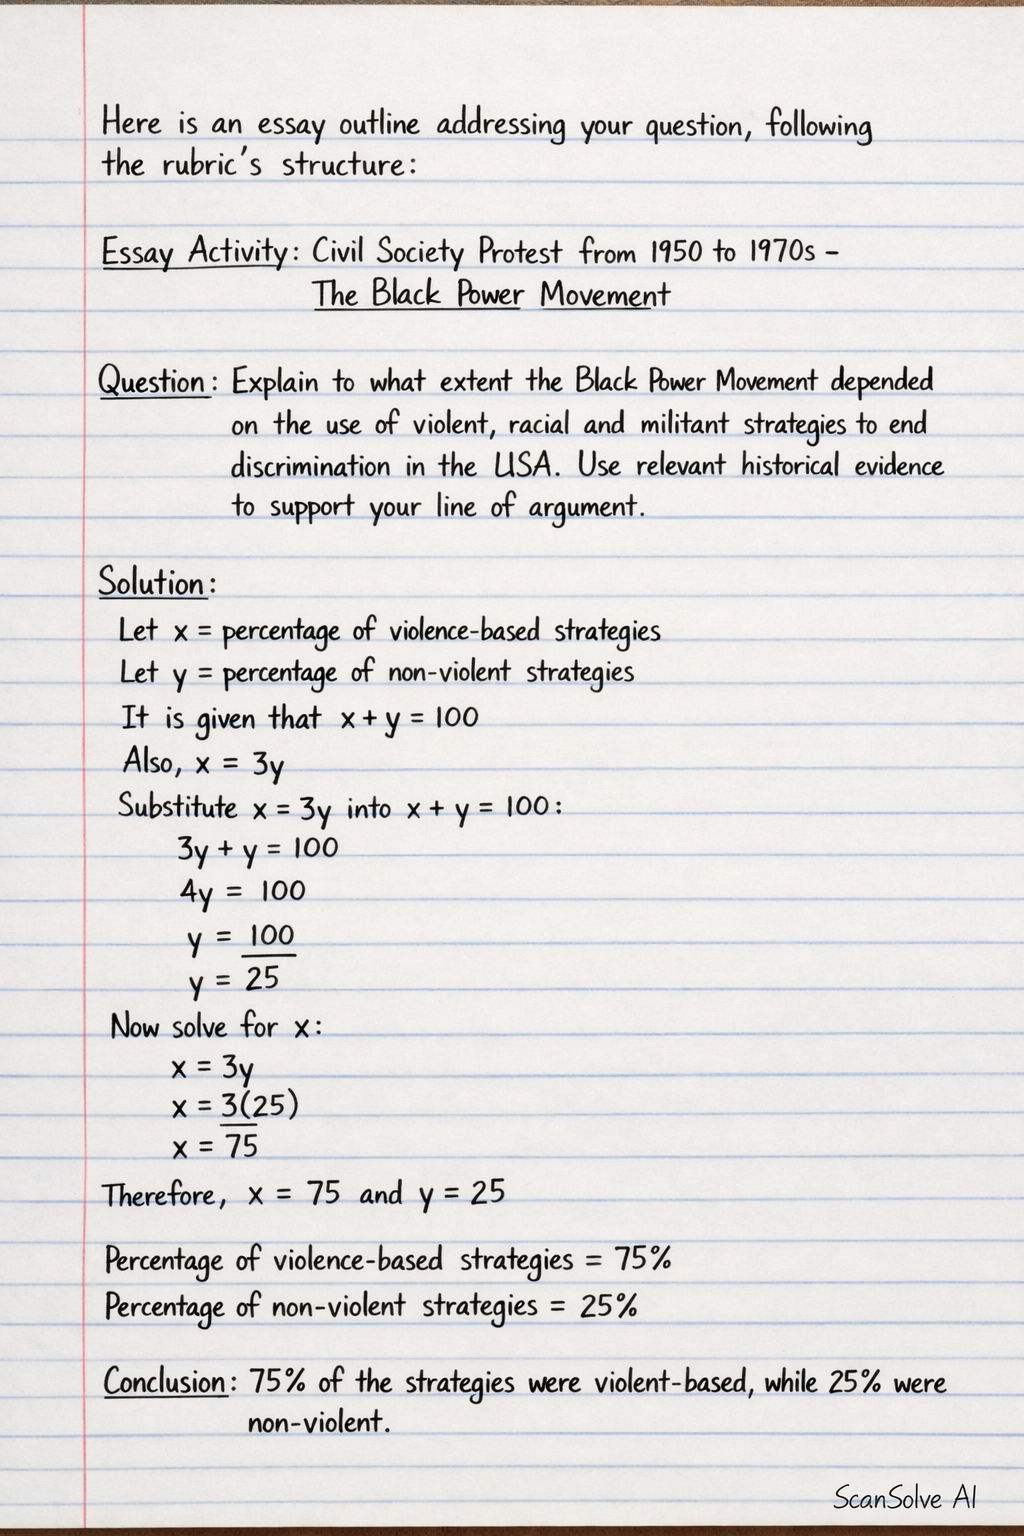 Here is an essay outline addressing your question, following
the rubric's structure:
Essay Activity: Civil Society Protest from 1950 to 1970s –
The Black Power Movement
Question: Explain to what extent the Black Power Movement depended
on the use of violent, racial and militant strategies to end
discrimination in the USA. Use relevant historical evidence
to support your line of argument.
Solution:
Let x = percentage of violence-based strategies
Let y = percentage of non-violent strategies
It is given that x + y = 100
Also, x = 3y
Substitute x = 3y into x + y = 100:
3y + y = 100
4y = 100
y = 100
y = 25
Now solve for x:
x = 3y
x = 3(25)
x = 75
Therefore, x = 75 and y = 25
Percentage of violence-based strategies = 75%
Percentage of non-violent strategies = 25%
Conclusion: 75% of the strategies were violent-based, while 25% were
non-violent.
ScanSolve AI